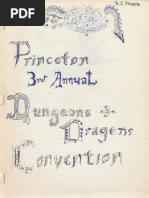 Princeton
3rd Annual
Dungeons &
Dragons
Convention